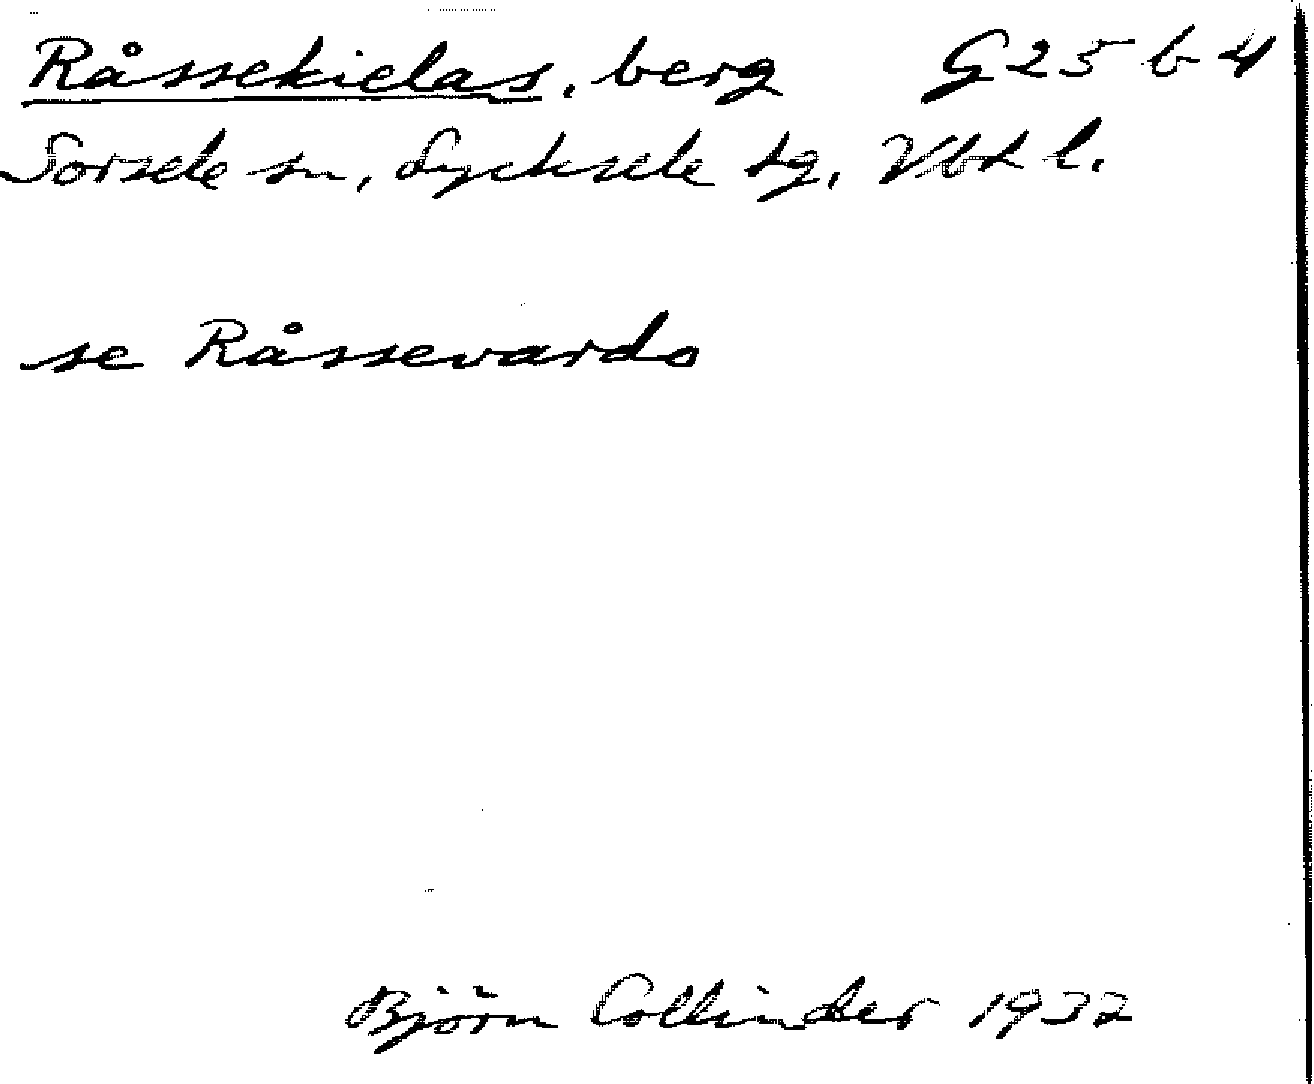 Råssekielas, berg G25 b 4
Sorsele sn, Lycksele lg, Vbtl l.
se Råssevardo
Björn Collinder 1932